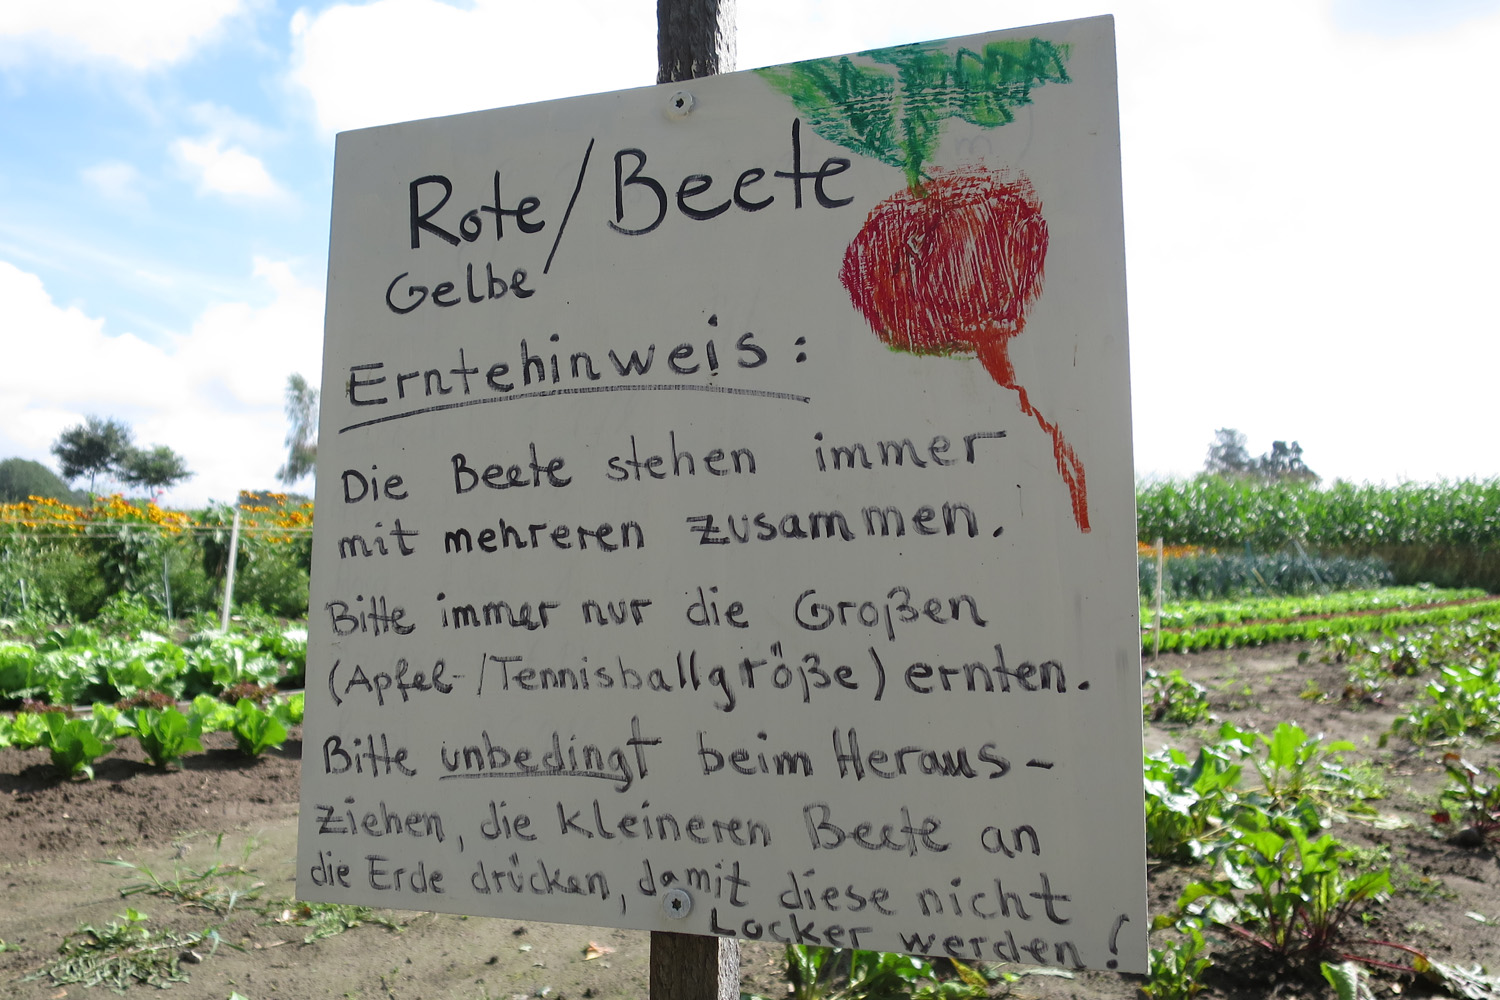 Rote/Beete
Gelbe
Erntehinweis:
Die Beete stehen immer
mit mehreren zusammen.
Bitte immer nur die Großen
(Apfel-/Tennisballgröße) ernten.
Bitte unbedingt beim Heraus-
ziehen, die kleineren Beete an
die Erde drücken, damit diese nicht
Locker werden!